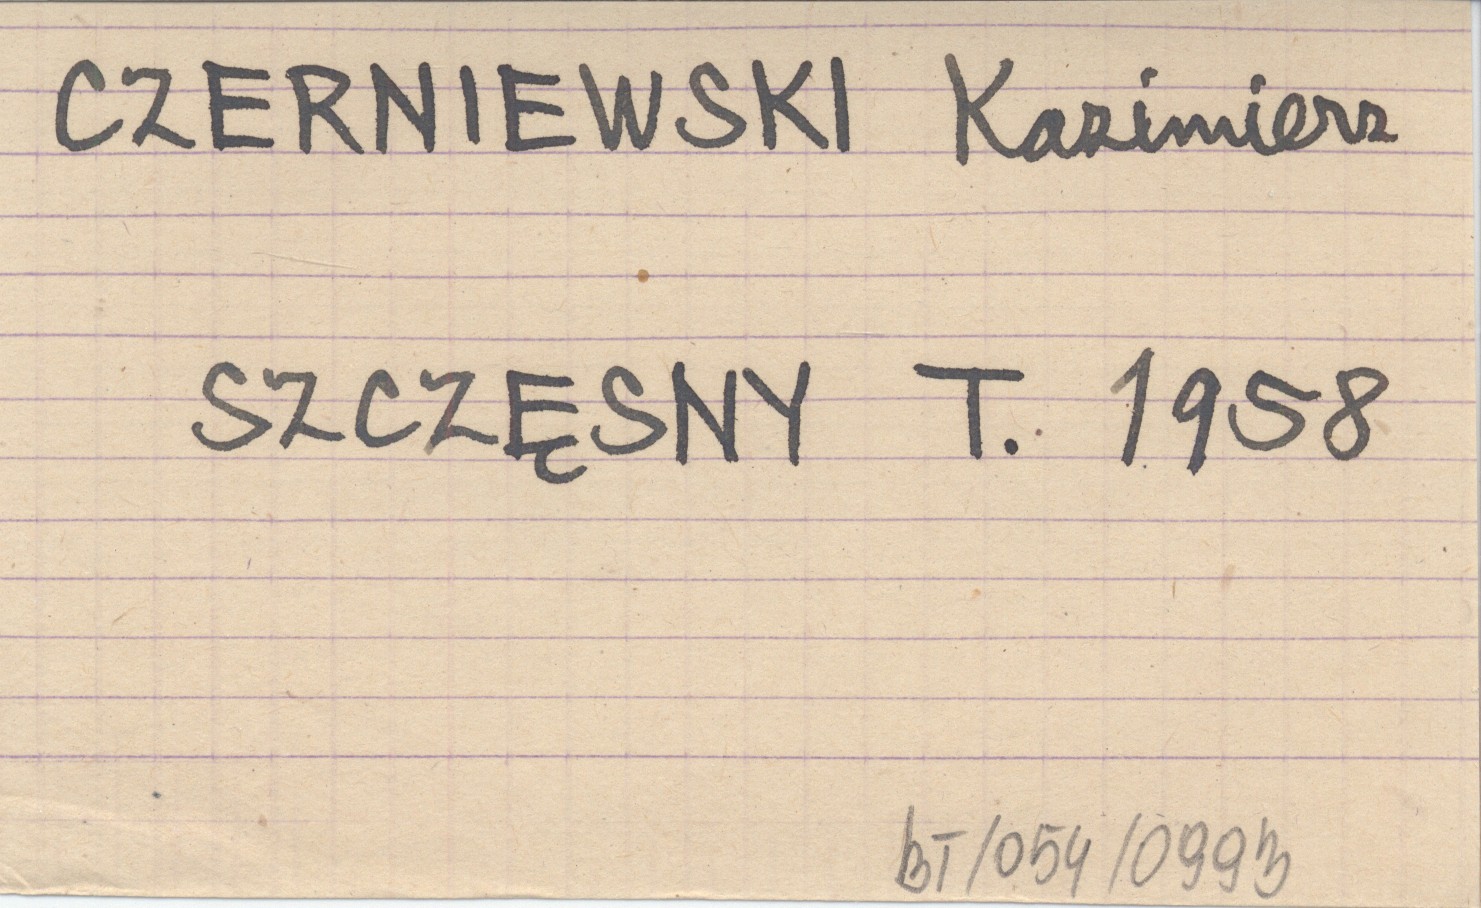 CZERNIEWSKI Kazimierz
SZCZĘSNY T. 1958
BT/054/0993